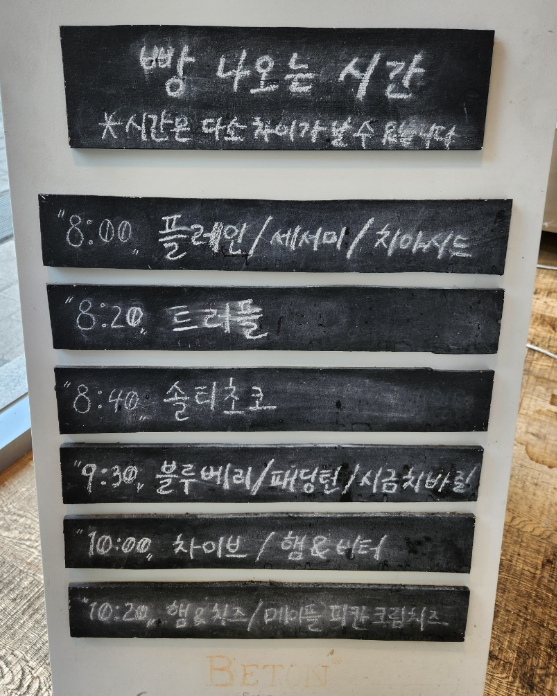 빵 나오는 시간
*시간은 다소 차이가 날 수 있습니다
"8:00" 플레인/세서미/치아시드
"8:20" 트러플
"8:40" 솔티초코
"9:30" 블루베리/패딩턴/시금치바질
"10:00" 차이브/햄&버터
"10:20" 햄&치즈/메이플 피칸 크림치즈
BETON